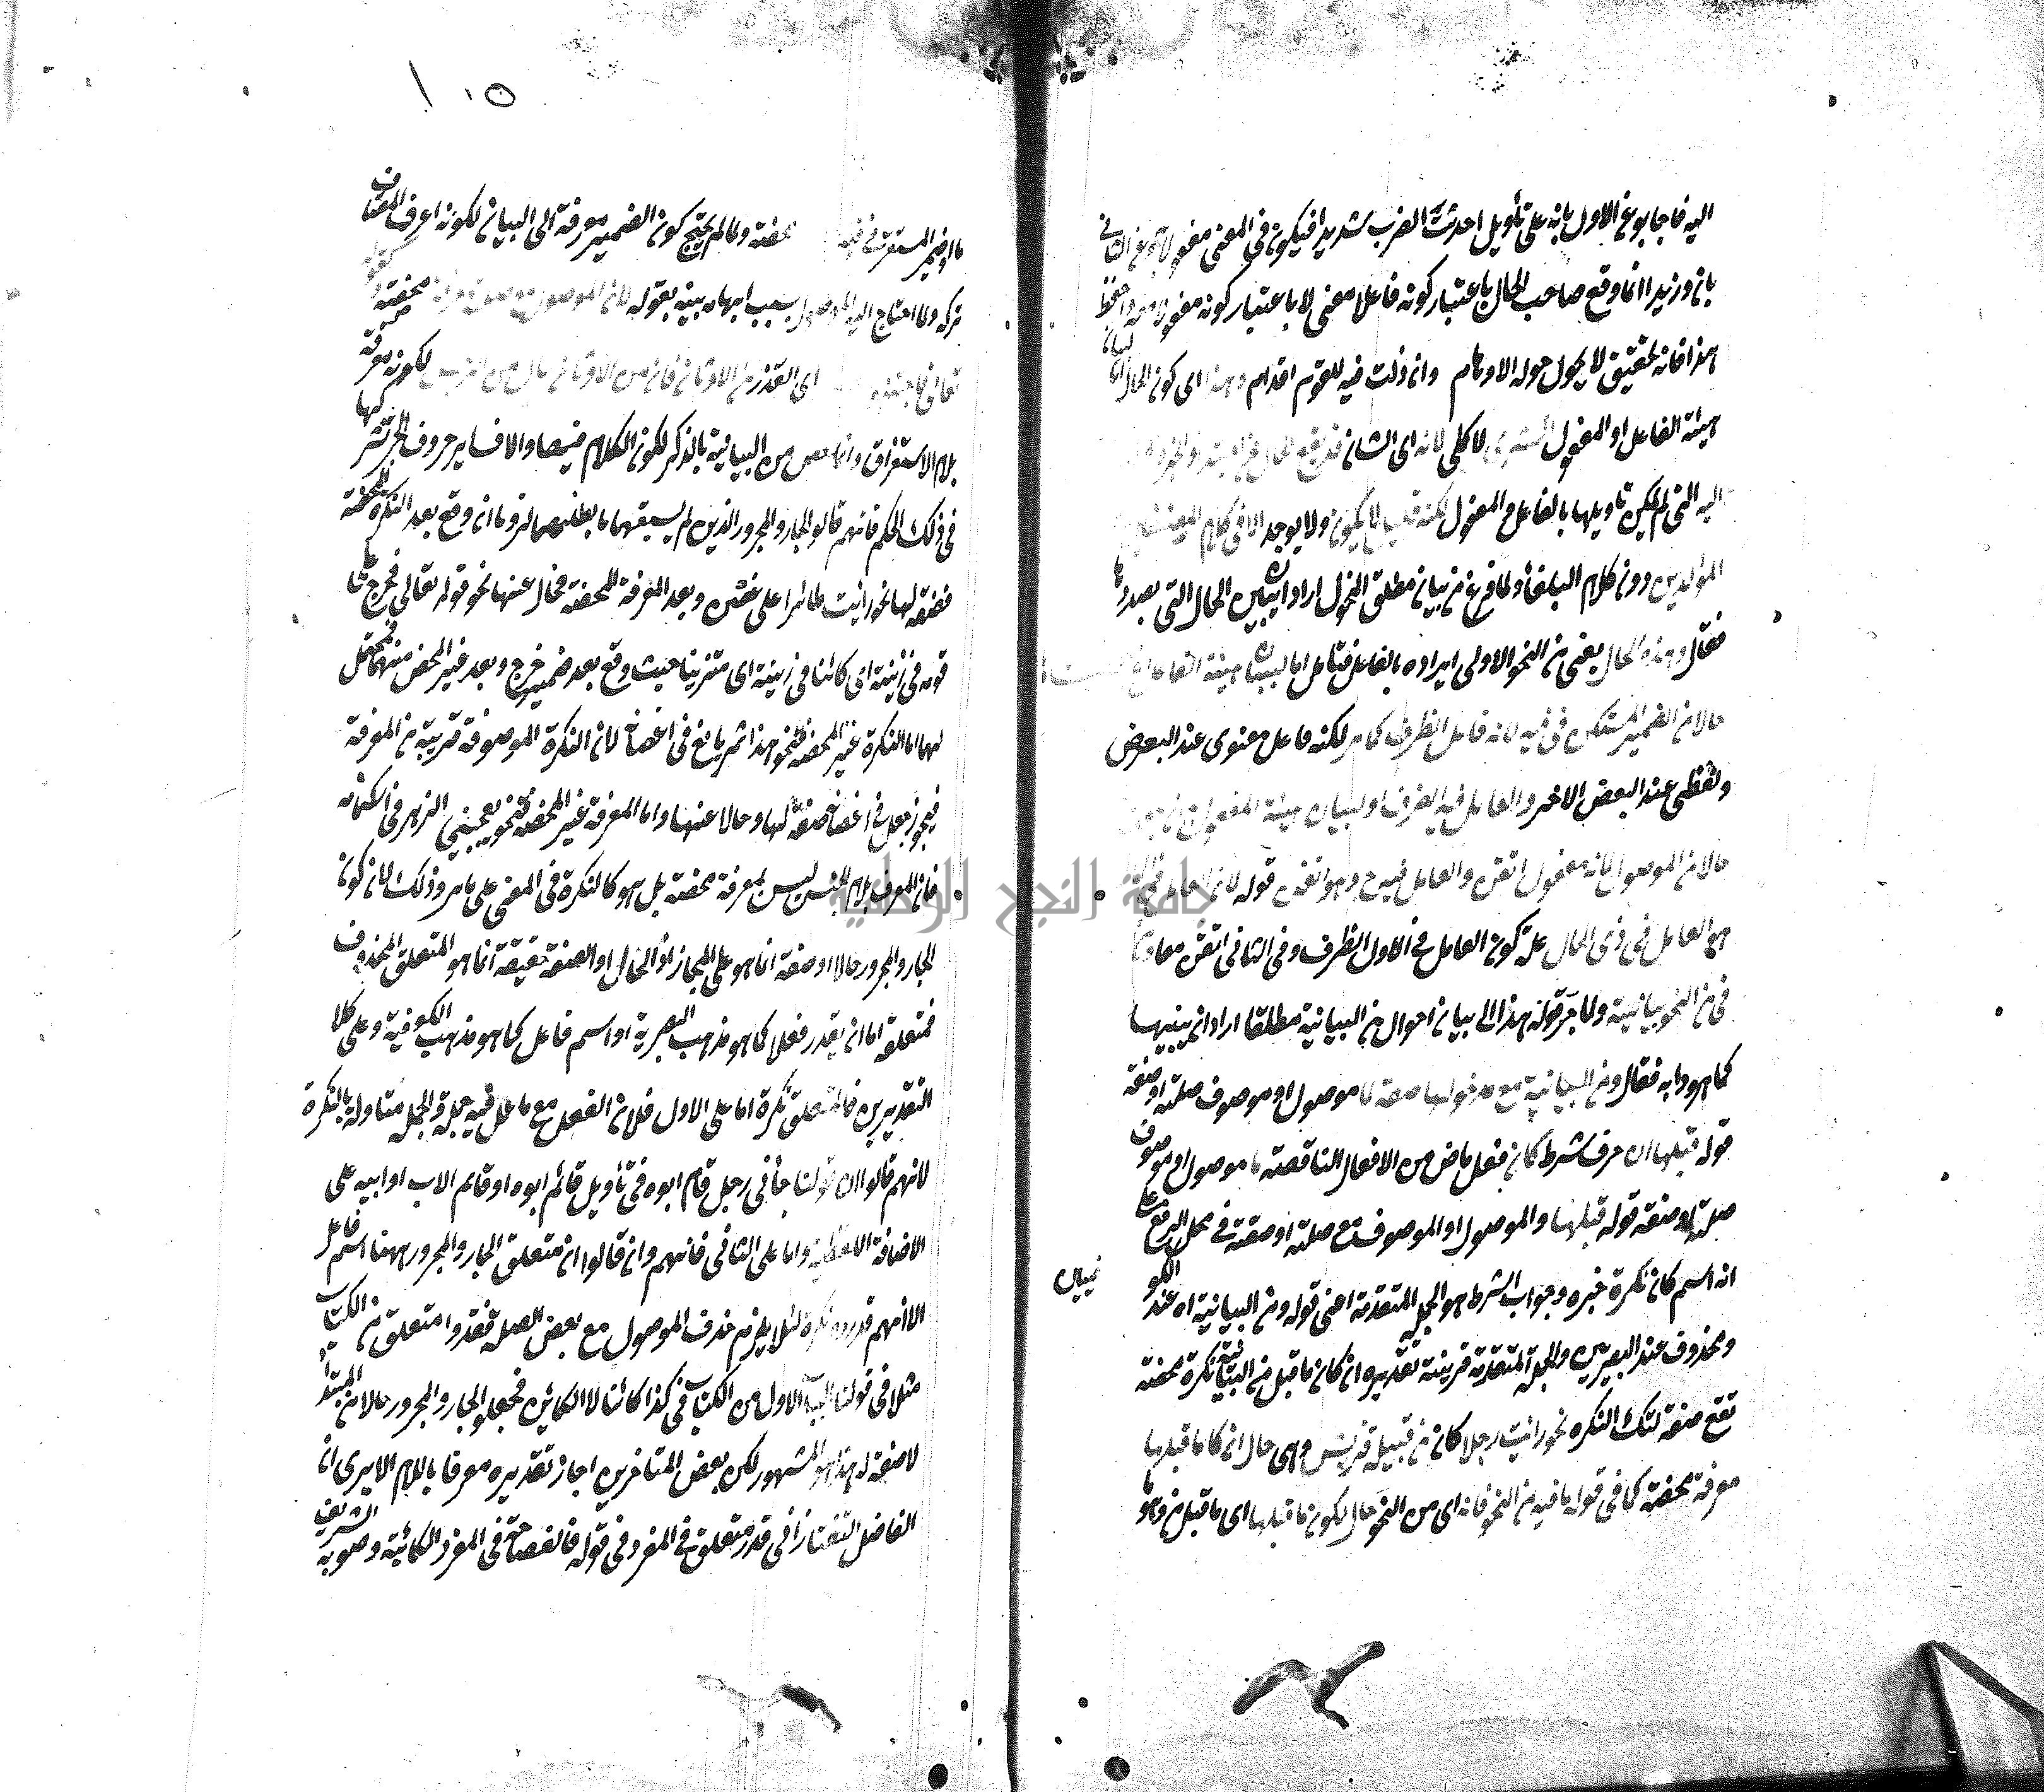 اليه فاجابوا عن الاول بانه على تأويل احدثت الضرب شديدا فيكون في المعنى مفعولا به وعن الثاني
بان زيدا انما وقع صاحب الحال باعتبار كونه فاعلا معنى لا باعتبار كونه مفعولا معه واحفظ
هذا فانه تحقيق لا يحول حوله الاوهام وان زلت فيه للقوم اقدام وهذا اى كون الحال لبيان
هيئة الفاعل او المفعول لا كلى لانه اى الشان قد تقع الحال عن المبتدأ والخبر
اليه التى لم يمكن تأويلها بالفاعل والمفعول لكنه ولا يوجد الا في كلام
المولدين دون كلام البلغاء ولما فرغ من بيان مطلق النحول اراد ان يبين الحال التى بصدرها
فقال وهذه الحال يعنى من النحو الاولى ايراده بالفاء فتأمل اما لبيان هيئة الفاعل
حالا من الضمير المستكن في فيه لانه فاعل الظرف كما مر لكنه فاعل معنوى عند البعض
ولفظى عند البعض الاخر والعامل فيه الظرف او لبيان هيئة المفعول
حالا من الموصول لانه مفعول اتقن والعامل فيه وهو اتقن قوله لان العامل في الحال
هو العامل في ذى الحال علة كون العامل في الاول الظرف وفي الثاني اتقن معا
في من النحو بيانية ولما جر قوله هذا الى بيان احوال من البيانية مطلقا اراد ان يبينها
كما هو دابه فقال ومن البيانية مع مدخولها صفة لما موصول او موصوف صلته او صفته
قوله قبلها ان حرف شرط كان فعل ماض من الافعال الناقصة ما موصول او موصوف
صلته او صفته قوله قبلها والموصول او الموصوف مع صلته او صفته في محل الرفع على
انه اسم كان نكرة خبره وجواب الشرط هو الجملة المتقدمة اعنى قوله ومن البيانية اه عند الكو
فيين
ومحذوف عند البصريين والجملة المتقدمة قرينة تقديره ان كان ما قبل من البيانية نكرة محضة
تقع صفة لتلك النكرة نحو رأيت رجلا كان من قبيلة قريش وهى حال ان كان ما قبلها
معرفة محضة كما في قوله ما فيه من النحو فانه اى من النحو حال لكون ما قبلها اى ما قبل من وهو
١٠٥
ما او ضمير المستتر في فيه محضة ولما لم يحتج كون الضمير معرفة الى البيان لكونه اعرف المعارف
تركه ولما احتاج اليه الموصول بسبب ابهامه بينه بقوله لان الموصول مع صلته معرفة محضة كقوله
تعالى فاجتنبوا اى القذر من الاوثان فان من الاوثان حال من الرجس لكونه معرفة
بلام الاستغراق وانما خص من البيانية بالذكر لكون الكلام فيها والا فسائر حروف الجر كلها تشترك
في ذلك الحكم فانهم قالوا الجار والمجرور الذين لم يسبقهما ما يطلبهما لزوما ان وقع بعد النكرة المحضة
فصفة لها نحو رأيت طائرا على غصن وبعد المعرفة المحضة فحال عنها نحو قوله تعالى فخرج على
قومه في زينته اى كائنا في زينته اى متزينا حيث وقع بعد ضمير خرج وبعد غير المحض منهما فمحتمل
لهما اما النكرة غير المحضة فنحو هذا ثمر يانع في اغصانه لان النكرة الموصوفة قريبة من المعرفة
فيجوز جعل في اغصانه صفة لها وحالا عنها واما المعرفة غير المحضة فنحو يعجبنى الزهر في اكمامه
فان المعرف بلام الجنس ليس بمعرفة محضة بل هو كالنكرة في المعنى على ما مر وذلك لان كون
الجار والمجرور حالا او صفة انما هو على المجاز اذ الحال او الصفة حقيقة انما هو المتعلق المحذوف
فمتعلقه اما ان يقدر فعلا كما هو مذهب البصرية او اسم فاعل كما هو مذهب الكوفية وعلى كلا
التقديرين فالمتعلق نكرة اما على الاول فلان الفعل مع ما عمل فيه جملة والجملة متأولة بالنكرة
لانهم قالوا ان قولنا جاءنى رجل قام ابوه في تأويل قائم ابوه او قائم الاب او ابيه على
الاضافة اللفظية واما على الثاني فانهم وان قالوا ان متعلق الجار والمجرور ههنا اسم فاعل
الا انهم قدروه نكرة لئلا يلزم حذف الموصول مع بعض الصلة فقدروا متعلق من الكتاب
مثلا في قولنا الباب الاول من الكتاب في كذا كائنا لا الكائن فجعلوا الجار والمجرور حالا من المبتدأ
لا صفة له هذا هو المشهور لكن بعض المتأخرين اجاز تقديره معرفا باللام الا يرى ان
الفاضل التفتازانى قدر متعلق في المفرد في قوله فالفصاحة في المفرد الكائنة وصوبه الشريف
جامعة النجاح الوطنية